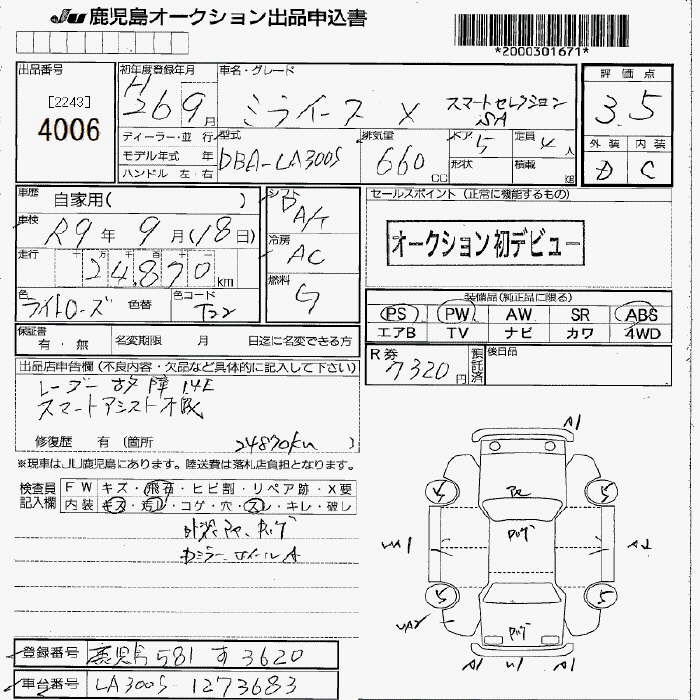 JU 鹿児島オークション出品申込書
*2000301671*
出品番号
[2243]
4006
初年度登録年月
H 26 9月
車名・グレード
ミライース X スマートセレクション SA
評価点
3.5
外装 内装
D C
ディーラー・並行
モデル年式 年
ハンドル 左・右
型式
DBA-LA300S
排気量
660 CC
ドア
5
形状
定員
4人
積載
車歴
自家用( )
車検
R9年 9月(18日)
走行
十万千百十一
24,870 km
色
ライトローズ
色替
色コード
T22
シフト
A/T
冷房
AC
燃料
G
セールスポイント(正常に機能するもの)
オークション初デビュー
装備品(純正品に限る)
PS PW AW SR ABS
エアB TV ナビ カワ 4WD
保証書
有・無
名変期限 月 日迄に名変できる方
R券
7320円
預託済
後日品
出品店申告欄(不良内容・欠品など具体的に記入して下さい)
レーダー故障 14E
スマートアシスト不良
修復歴 有(箇所 24870km )
※現車はJU鹿児島にあります。陸送費は落札店負担となります。
検査員記入欄
FW キズ・飛石・ヒビ割・リペア跡・X要
内装 キズ・汚レ・コゲ・穴・スレ・キレ・破レ
外装 アセ、カップ
ホイール A
A1
5 5
アセ
カップ
A2
5 5
UA2
カップ
A1 U1 A1
登録番号 鹿児島 581 す 3620
車台番号 LA300S-1273683